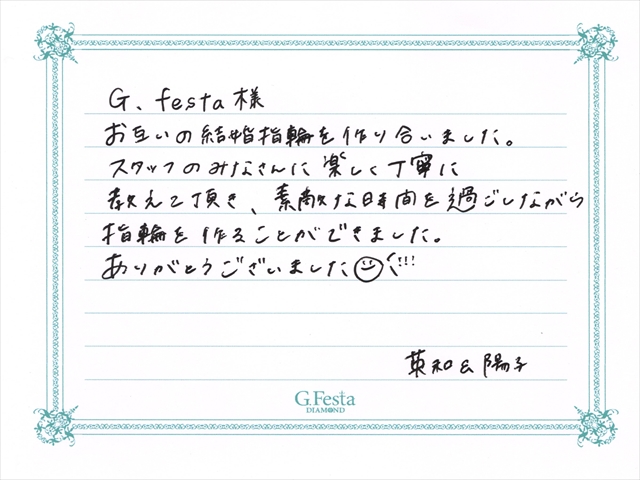 G、festa様
お互いの結婚指輪を作り合いました。
スタッフのみなさんに楽しく丁寧に
教えて頂き、素敵な時間を過ごしながら
指輪を作ることができました。
ありがとうございました!!!
英和&陽子
G.Festa
DIAMOND